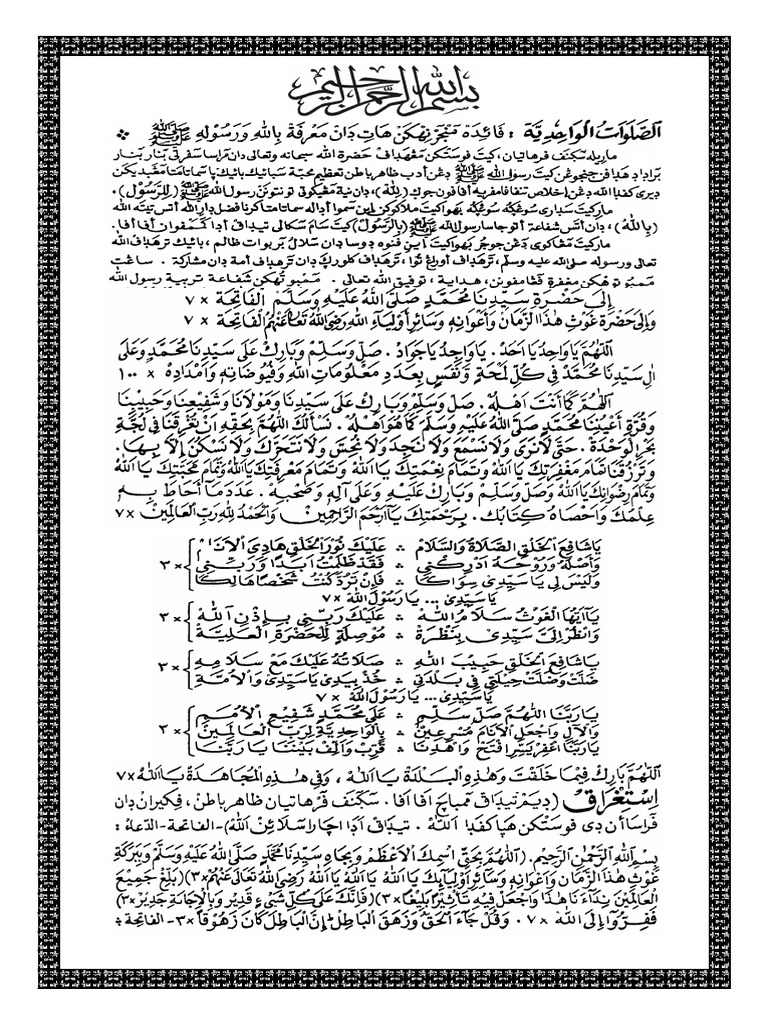 بسم الله الرحمن الرحيم
اَلصَّلَوَاتُ الْوَاحِدِيَّة : فَائِدَة مَنْجَرْنِهْكَنْ هَاتِ دَانْ مَعْرِفَةْ بِاللهِ وَرَسُوْلِهِ ﷺ
ماريله سكنف فرهاتيان، كيت فوستكن مڠهداف حضرة الله سبحانه وتعالى دان مراسا سفرتي بنار بنار
برادا دهدافن جنجوڠن كيت رسول الله ﷺ دڠن أدب ظاهر باطن تعظيم محبة سبائيك بائيك سماتا متا مڠهديكن
ديري كفدا الله دڠن إخلاص تنفا فامريه أفافون جوك (لِلّٰهْ)، دان نية مڠيكوتي تونتونن رسول الله ﷺ (لِلرَّسُوْل).
ماري كيت سداري سوڠڬوه سوڠڬوه بهوا كيت ملاكوكن اين سموا اداله سماتا متا كرنا فضل دار الله أتس تيته الله
(بِاللهْ)، دان أتس شفاعة أتو جاسا رسول الله ﷺ (بِالرَّسُوْلْ) كيت سام سكالي تيداق أدا كمفوان أفا أفا.
ماري كيت مڠاكوي دڠن جوجر بهوا كيت اين فنوه دوسا دان سلالو بربوات ظالم، بائيك ترهداف الله
تعالى ورسوله صلى الله عليه وسلم، ترهداف أورڠ توا، ترهداف كلورڬ دان ترهداف أمة دان مشاركة. ساڠت
ممبوتوهكن مغفرة فڠامفونن، هداية، توفيق الله تعالى. ممبوتوهكن شفاعة تربية رسول الله
إِلَى حَضْرَةِ سَيِّدِنَا مُحَمَّدٍ صَلَّى اللهُ عَلَيْهِ وَسَلَّمَ اَلْفَاتِحَة ×٧
وَإِلَى حَضْرَةِ غَوْثِ هٰذَا الزَّمَانِ وَأَعْوَانِهِ وَسَائِرِ أَوْلِيَاءِ اللهِ رَضِيَ اللهُ تَعَالَى عَنْهُمْ اَلْفَاتِحَة ×٧
اَللّٰهُمَّ يَا وَاحِدُ يَا اَحَدْ. يَا وَاجِدُ يَا جَوَادْ. صَلِّ وَسَلِّمْ وَبَارِكْ عَلَى سَيِّدِنَا مُحَمَّدٍ وَعَلَى
اٰلِ سَيِّدِنَا مُحَمَّدْ فِى كُلِّ لَمْحَةٍ وَنَفَسٍ بِعَدَدِ مَعْلُوْمَاتِ اللهِ وَفُيُوْضَاتِهِ وَاَمْدَادِهْ ×١٠٠
اَللّٰهُمَّ كَمَا أَنْتَ اَهْلُهْ. صَلِّ وَسَلِّمْ وَبَارِكْ عَلَى سَيِّدِنَا وَمَوْلَانَا وَشَفِيْعِنَا وَحَبِيْبِنَا
وَقُرَّةِ أَعْيُنِنَا مُحَمَّدٍ صَلَّى اللهُ عَلَيْهِ وَسَلَّمَ كَمَا هُوَ أَهْلُهْ. نَسْأَلُكَ اللّٰهُمَّ بِحَقِّهِ اَنْ تُغْرِقَنَا فِى لُجَّةِ
بَحْرِ الْوَحْدَةْ. حَتَّى لَا نَرَى وَلَا نَسْمَعَ وَلَا نَجِدَ وَلَا نُحِسَّ وَلَا نَتَحَرَّكَ وَلَا نَسْكُنَ اِلَّا بِهَا.
وَتَرْزُقَنَا تَمَامَ مَغْفِرَتِكَ يَا اَللهْ وَتَمَامَ نِعْمَتِكَ يَا اَللهْ وَتَمَامَ مَعْرِفَتِكَ يَا اَللهْ وَتَمَامَ مَحَبَّتِكَ يَا اَللهْ
وَتَمَامَ رِضْوَانِكَ يَا اَللهْ وَصَلِّ وَسَلِّمْ وَبَارِكْ عَلَيْهِ وَعَلَى آلِهِ وَصَحْبِهْ. عَدَدَ مَا أَحَاطَ بِهِ
عِلْمُكَ وَاَحْصَاهُ كِتَابُكْ. بِرَحْمَتِكَ يَا اَرْحَمَ الرَّاحِمِيْنْ وَالْحَمْدُ لِلّٰهِ رَبِّ الْعَالَمِيْنْ ×٧
يَا شَافِعَ الْخَلْقِ الصَّلَاةُ وَالسَّلَامْ ÷ عَلَيْكَ نُوْرَ الْخَلْقِ هَادِيَ الْاَنَامْ
وَأَصْلَهُ وَرُوْحَهُ اَدْرِكْنِى ÷ فَقَدْ ظَلَمْتُ اَبَدًا وَرَبِّنِى ×٣
وَلَيْسَ لِى يَا سَيِّدِى سِوَاكَا ÷ فَاِنْ تَرُدَّ كُنْتُ شَخْصًا هَالِكَا
يَا سَيِّدِى ... يَا رَسُوْلَ اللهْ ×٧
يَا اَيُّهَا الْغَوْثُ سَلَامُ اللهْ ÷ عَلَيْكَ رَبِّنِى بِإِذْنِ اللهْ ×٣
وَانْظُرْ اِلَيَّ سَيِّدِى بِنَظْرَةْ ÷ مُوْصِلَةٍ لِلْحَضْرَةِ الْعَلِيَّةْ
يَا شَافِعَ الْخَلْقِ حَبِيْبَ اللهِ ÷ صَلَاتُهُ عَلَيْكَ مَعْ سَلَامِهِ ×٣
ضَلَّتْ وَضَلَّتْ حِيْلَتِى فِى بَلْدَتِى ÷ خُذْ بِيَدِى يَا سَيِّدِى وَالْاُمَّةِ
يَا سَيِّدِى ... يَا رَسُوْلَ اللهْ ×٧
يَا رَبَّنَا اللّٰهُمَّ صَلِّ سَلِّمِ ÷ عَلَى مُحَمَّدٍ شَفِيْعِ الْاُمَمِ
وَالْآلِ وَاجْعَلِ الْاَنَامَ مُسْرِعِيْنْ ÷ بِالْوَاحِدِيَّةِ لِرَبِّ الْعَالَمِيْنْ ×٣
يَا رَبَّنَا اغْفِرْ يَسِّرِ افْتَحْ وَاهْدِنَا ÷ قَرِّبْ وَاَلِّفْ بَيْنَنَا يَا رَبَّنَا
اَللّٰهُمَّ بَارِكْ فِيْمَا خَلَقْتَ وَهٰذِهِ الْبَلْدَةْ يَا اَللهْ، وَفِى هٰذِهِ الْمُجَاهَدَةْ يَا اَللهْ ×٧
اِسْتِغْرَاقْ (ديم تيداق ممباچ أفا أفا. سكنف فرهاتيان ظاهر باطن، فكيران دان
فراسأن دي فوستكن هپا كفدا اَللهْ. تيداق ادا اچارا سلائن الله) -الفاتحة- الدعاء:
بِسْمِ اللهِ الرَّحْمٰنِ الرَّحِيْمِ. (اَللّٰهُمَّ بِحَقِّ اسْمِكَ الْاَعْظَمِ وَبِجَاهِ سَيِّدِنَا مُحَمَّدٍ صَلَّى اللهُ عَلَيْهِ وَسَلَّمَ وَبِبَرَكَةِ
غَوْثِ هٰذَا الزَّمَانِ وَاَعْوَانِهِ وَسَائِرِ اَوْلِيَائِكَ يَا اَللهْ يَا اَللهْ يَا اَللهْ رَضِيَ اللهُ تَعَالَى عَنْهُمْ ×٣) (بَلِّغْ جَمِيْعَ
الْعَالَمِيْنَ نِدَاءَنَا هٰذَا وَاجْعَلْ فِيْهِ تَأْثِيْرًا بَلِيْغًا ×٣) (فَاِنَّكَ عَلَى كُلِّ شَيْءٍ قَدِيْرٌ وَبِالْاِجَابَةِ جَدِيْرٌ ×٣)
فَفِرُّوْا اِلَى اللهْ ×٧ وَقُلْ جَاءَ الْحَقُّ وَزَهَقَ الْبَاطِلُ اِنَّ الْبَاطِلَ كَانَ زَهُوْقًا ×٣ - الفاتحة ÷